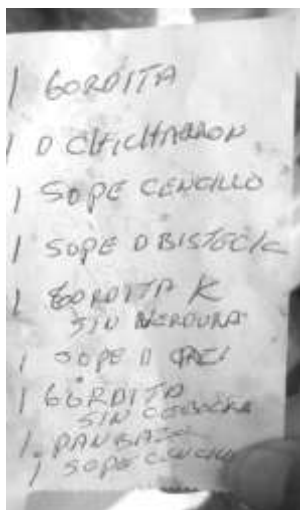 1 GORDITA
1 D CHICHARRON
1 SOPE CENCILLO
1 SOPE D BISTECK
1 GORDITA K
SIN VERDURA
1 SOPE D
1 GORDITA
SIN CEBOLLA
1 PANBAZO
1 SOPE CENCILLO